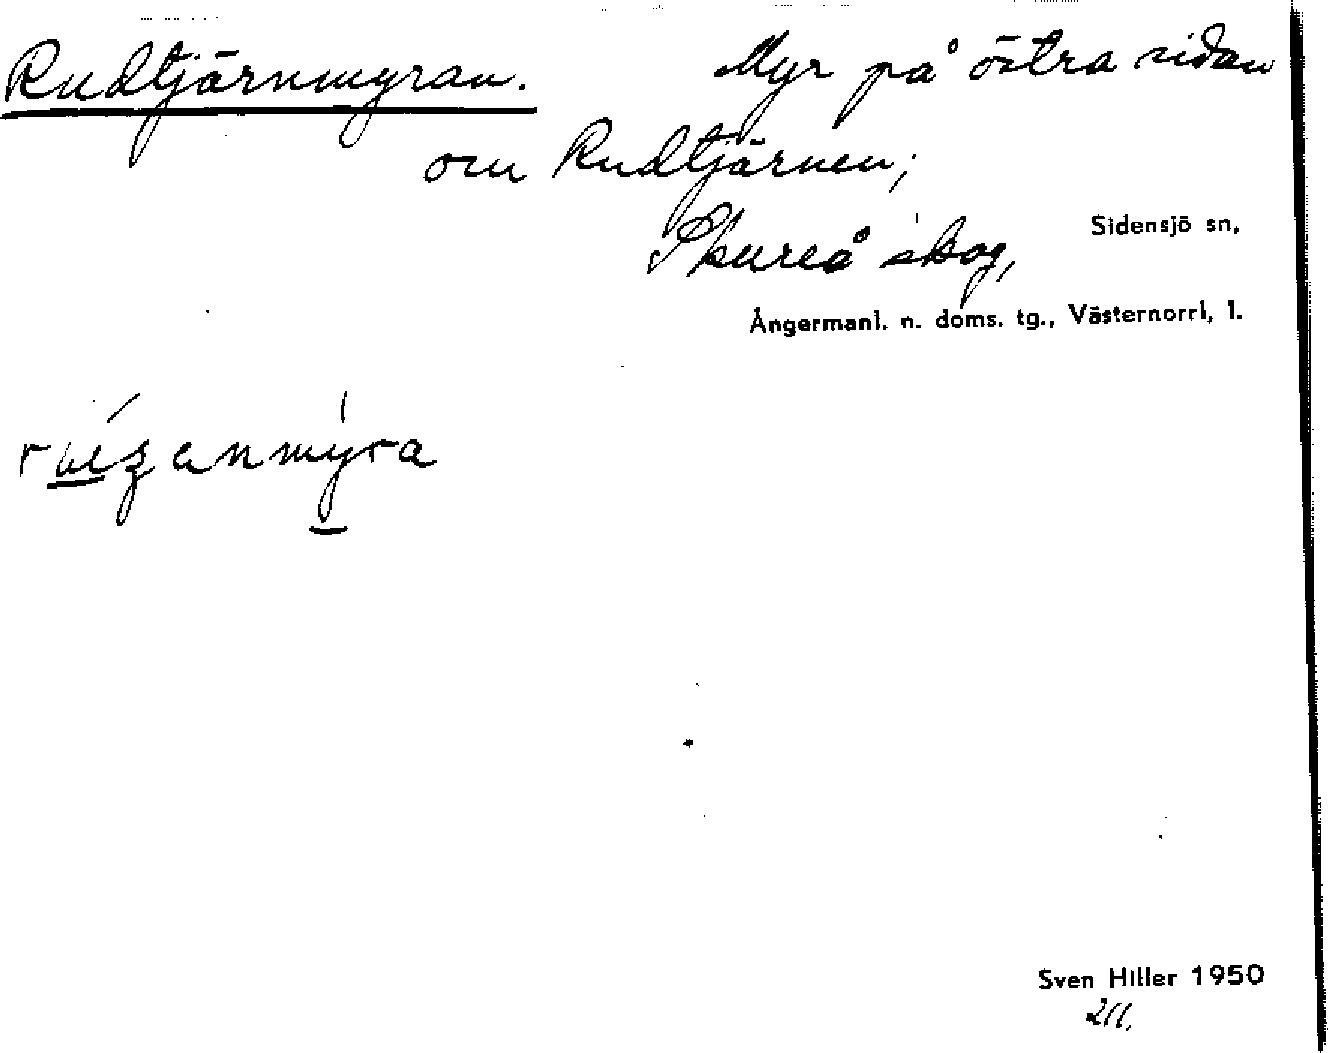 Rudtjärnmyran. Myr på östra sidan
om Rudtjärnen;
Skureå skog,
Sidensjö sn,
Ångermanl. n. doms. tg., Västernorrl, l.
Sven Hiller 1950
211.